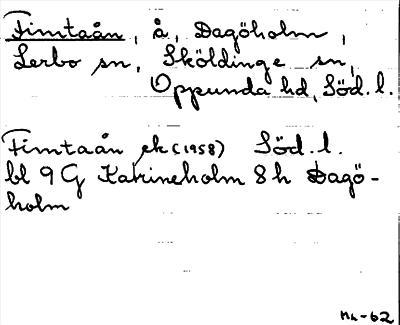 Fimtaån, å, Dagöholm,
Lerbo sn, Sköldinge sn,
Oppunda hd, Söd. l.
Fimtaån ek (1958) Söd. l.
bl 9 G Katrineholm 8 h Dagö-
holm